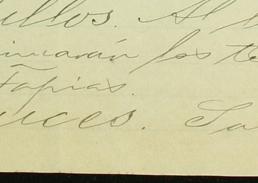 illos. Al
inuarán los t
Tapias.
uces. Sa